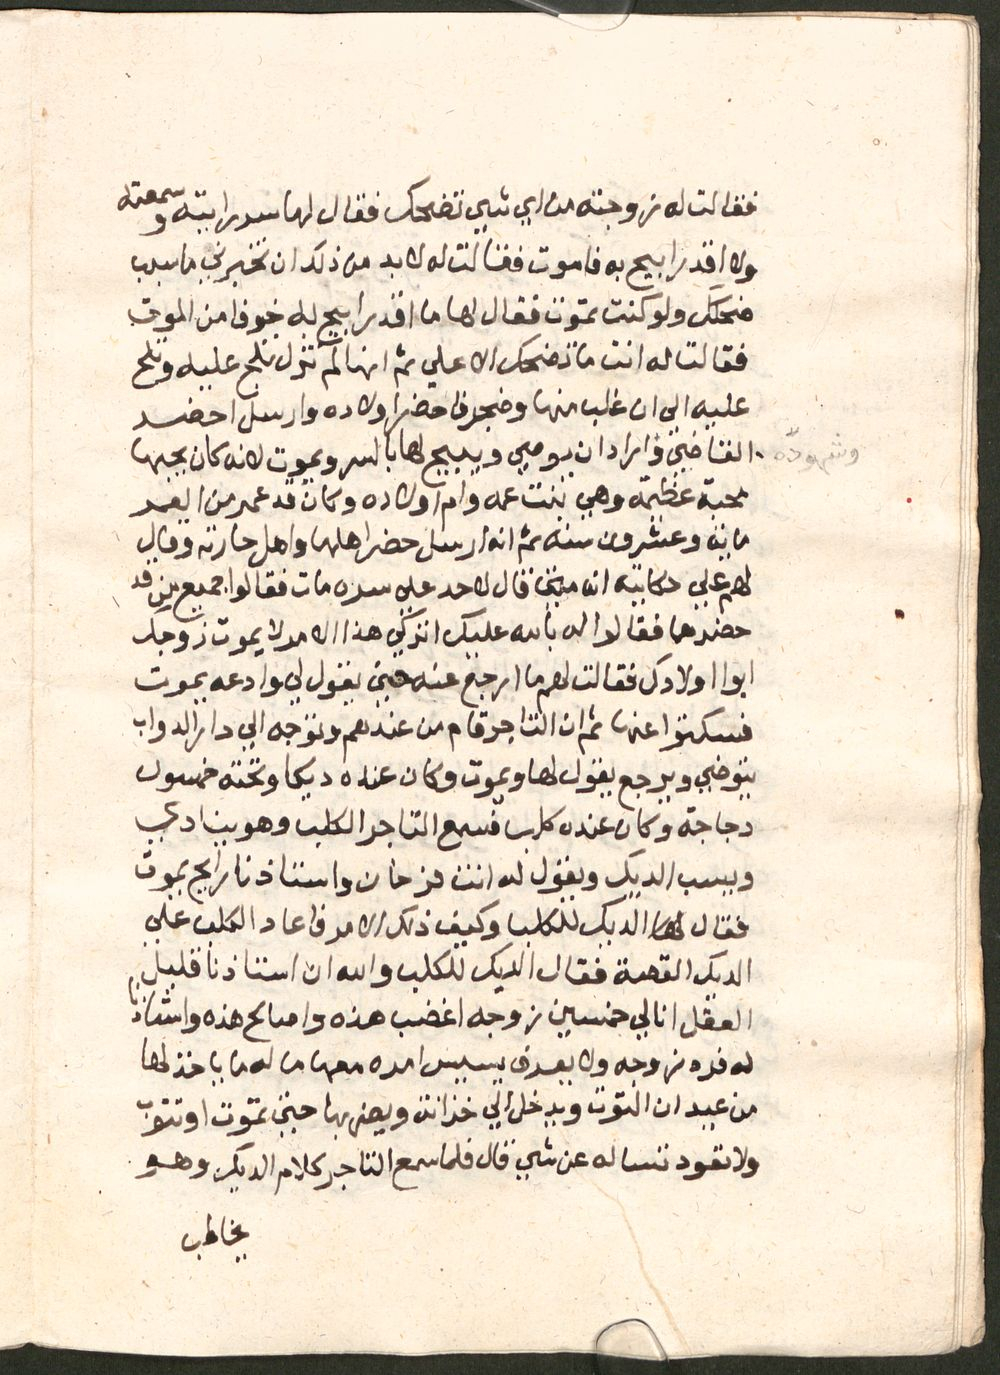 فقالت له زوجته من اي شي تضحك فقال لها سر رايته وسمعته
ولا اقدر ابيح به فاموت فقالت له لا بد من ذلك ان تخبرني ما سبب
ضحكك ولو كنت تموت فقال لها ما اقدر ابيح به خوفا من الموت
فقالت له انت ما تضحك الا علي ثم انها لم تزل تلح عليه وتلح
عليه الي ان غلب منها وضجر فاحضر اولاده وارسل احضر
القاضي واراد ان يوصي ويبيح لها بالسر ويموت لانه كان يحبها
وشهوده
محبة عظيمة وهي بنت عمه وام اولاده وكان قد عمر من العمر
ماية وعشرون سنه ثم انه ارسل حضر اهلها واهل حارته وقال
لهم علي حكايته انه متي قال لاحد علي سره مات فقالوا جميع من قد
حضرها فقالوا لها بالله عليك اتركي هذا الامر لا يموت زوجك
ابوا اولادك فقالت لهم ما ارجع عنه حتي يقول لي وادعه يموت
فسكتوا عنها ثم ان التاجر قام من عندهم وتوجه الي دار الدواب
يتوضي ويرجع يقول لها ويموت وكان عنده ديكا وتحته خمسون
دجاجة وكان عنده كلب فسمع التاجر الكلب وهو ينادي
ويسب الديك ويقول له انت فرحان واستاذنا رايح يموت
فقال الديك للكلب وكيف ذلك الامر فاعاد الكلب علي
الديك القصة فقال الديك للكلب والله ان استاذنا قليل
العقل انا لي خمسين زوجه اغضب هذه واصالح هذه واستاذنا
له فرد زوجه ولا يعرف يسيس امره معها ما له ما ياخذ لها
من عيدان التوت ويدخل الي خزانته ويضربها حتي تموت او تتوب
ولا تعود تساله عن شي قال فلما سمع التاجر كلام الديك وهو
يخاطب